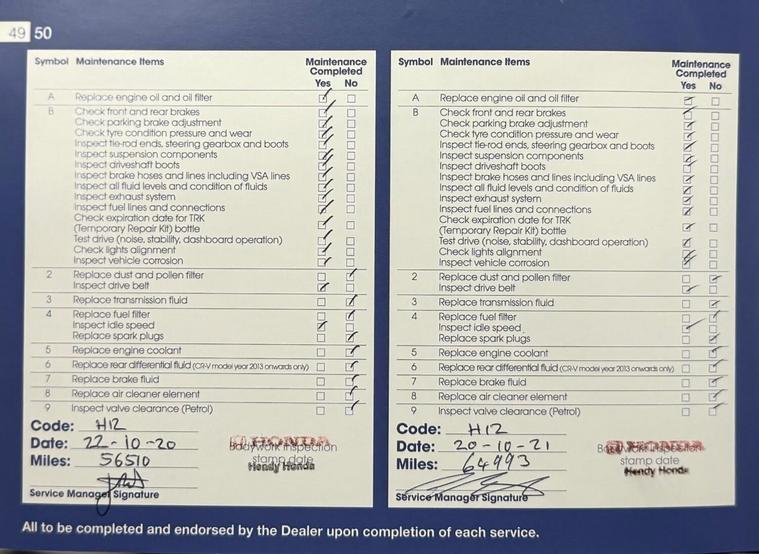 49 50
Symbol Maintenance Items Maintenance Completed Yes No
A Replace engine oil and oil filter
B Check front and rear brakes
Check parking brake adjustment
Check tyre condition pressure and wear
Inspect tie-rod ends, steering gearbox and boots
Inspect suspension components
Inspect driveshaft boots
Inspect brake hoses and lines including VSA lines
Inspect all fluid levels and condition of fluids
Inspect exhaust system
Inspect fuel lines and connections
Check expiration date for TRK
(Temporary Repair Kit) bottle
Test drive (noise, stability, dashboard operation)
Check lights alignment
Inspect vehicle corrosion
2 Replace dust and pollen filter
Inspect drive belt
3 Replace transmission fluid
4 Replace fuel filter
Inspect idle speed
Replace spark plugs
5 Replace engine coolant
6 Replace rear differential fluid (CR-V model year 2013 onwards only)
7 Replace brake fluid
8 Replace air cleaner element
9 Inspect valve clearance (Petrol)
Code: H12
Date: 22-10-20
Miles: 56510
HONDA
Bodywork inspection
stamp date
Hendy Honda
Service Manager Signature
Symbol Maintenance Items Maintenance Completed Yes No
A Replace engine oil and oil filter
B Check front and rear brakes
Check parking brake adjustment
Check tyre condition pressure and wear
Inspect tie-rod ends, steering gearbox and boots
Inspect suspension components
Inspect driveshaft boots
Inspect brake hoses and lines including VSA lines
Inspect all fluid levels and condition of fluids
Inspect exhaust system
Inspect fuel lines and connections
Check expiration date for TRK
(Temporary Repair Kit) bottle
Test drive (noise, stability, dashboard operation)
Check lights alignment
Inspect vehicle corrosion
2 Replace dust and pollen filter
Inspect drive belt
3 Replace transmission fluid
4 Replace fuel filter
Inspect idle speed
Replace spark plugs
5 Replace engine coolant
6 Replace rear differential fluid (CR-V model year 2013 onwards only)
7 Replace brake fluid
8 Replace air cleaner element
9 Inspect valve clearance (Petrol)
Code: H12
Date: 20-10-21
Miles: 64993
HONDA
Bodywork inspection
stamp date
Hendy Honda
Service Manager Signature
All to be completed and endorsed by the Dealer upon completion of each service.